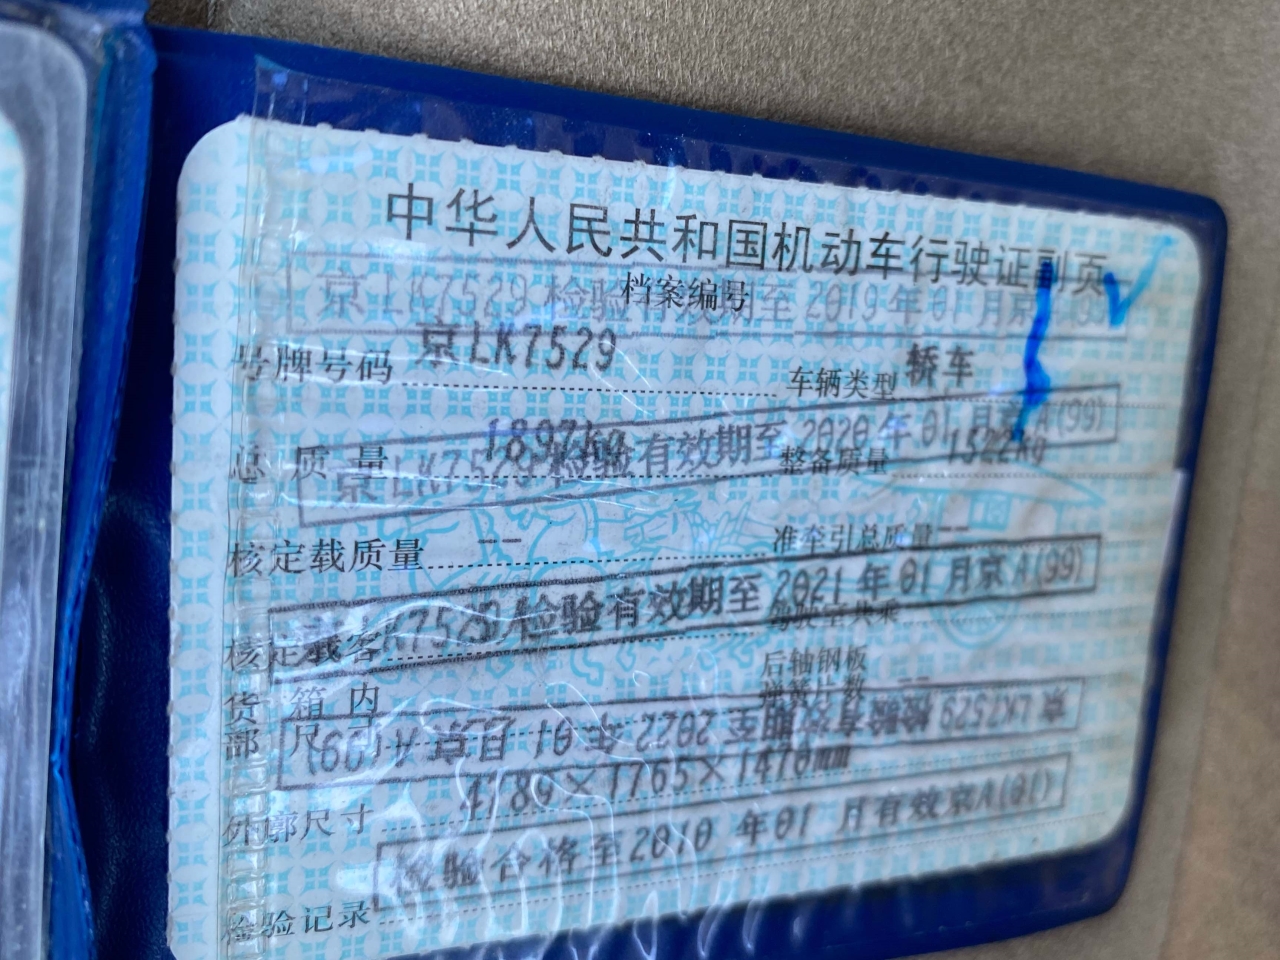 中华人民共和国机动车行驶证副页
档案编号
京LK7529 检验有效期至 2019 年 01 月京
号牌号码 京LK7529 车辆类型 轿车
京LK7529 检验有效期至 2020 年 01 月京A(99)
总 质 量 1897kg 整备质量 1522kg
核定载质量 -- 准牵引总质量 --
K7529 检验有效期至 2021 年 01 月京A(99)
核定载客
货 箱 内 后轴钢板
部 尺 弹簧片数 --
京LK7529 检验有效期至 2022 年 01 月京A(99)
外廓尺寸 4789×1765×1470mm
检验合格至2010 年01 月有效京A(01)
检验记录